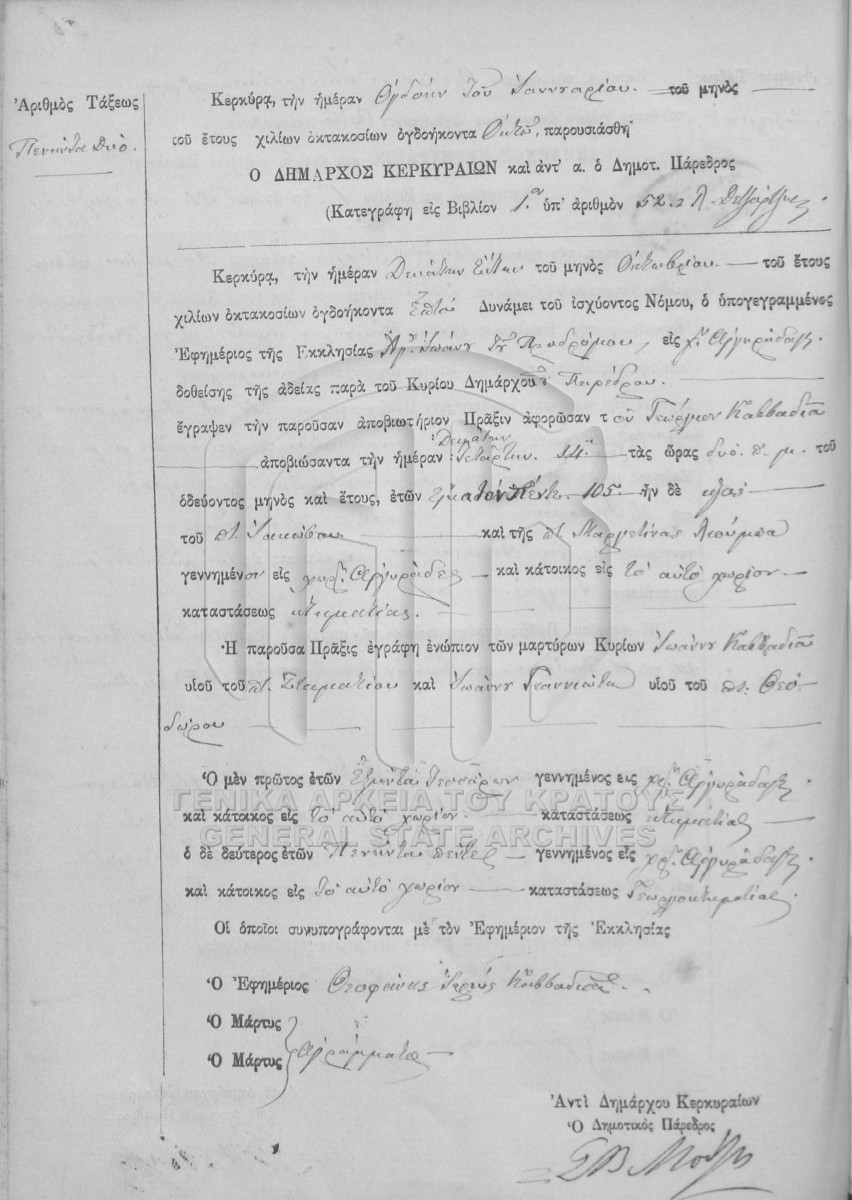 Ἀριθμὸς Τάξεως
Πενῆντα Δύο.
Κερκύρᾳ, τὴν ἡμέραν Ὀγδόην τοῦ Ἰαννουαρίου. τοῦ μηνὸς
τοῦ ἔτους χιλίων ὀκτακοσίων ὀγδοήκοντα Ὀκτὼ, παρουσιάσθη
Ο ΔΗΜΑΡΧΟΣ ΚΕΡΚΥΡΑΙΩΝ καὶ ἀντ' α. ὁ Δημοτ. Πάρεδρος
(Κατεγράφη εἰς Βιβλίον 1.ον ὑπ' ἀριθμὸν 52.
Κερκύρᾳ, τὴν ἡμέραν Δεκάτην Ἕκτην τοῦ μηνὸς Ὀκτωβρίου. τοῦ ἔτους
χιλίων ὀκτακοσίων ὀγδοήκοντα Ἑπτὰ Δυνάμει τοῦ ἰσχύοντος Νόμου, ὁ ὑπογεγραμμένος
Ἐφημέριος τῆς Εκκλησίας Ἁγ. Ἰωάνν. τοῦ Προδρόμου, εἰς χ. Ἀργυράδαις
δοθείσης τῆς ἀδείας παρὰ τοῦ Κυρίου Δημάρχου Παρέδρου.
ἔγραψεν τὴν παροῦσαν ἀποβιωτήριον Πρᾶξιν ἀφορῶσαν τὸν Γεώργιον Καββαδία
Δεκάτην
ἀποβιώσαντα τὴν ἡμέραν Τετάρτην. 14. τὰς ὥρας δύο. π. μ. τοῦ
ὁδεύοντος μηνὸς καὶ ἔτους, ἐτῶν Ἑκατὸν Πέντε. 105 ἦν δὲ υἱὸς
τοῦ πτ. Ἰακώβου καὶ τῆς πτ. Μαργετίνας Λιούμπα
γεννημένον εἰς χωρ. Ἀργυράδες καὶ κάτοικος εἰς τὸ αὐτὸ χωρίον
καταστάσεως κτηματίας.
Ἡ παροῦσα Πρᾶξις ἐγράφη ἐνώπιον τῶν μαρτύρων Κυρίων Ἰωάννου Καββαδία
υἱοῦ τοῦ πτ. Σταματίου καὶ Ἰωάννου Γιαννιώτη υἱοῦ τοῦ πτ. Θεο-
δώρου
Ὁ μὲν πρῶτος ἐτῶν Ἑξῆντα Τεσσάρων γεννημένος εις χρ. Ἀργυράδαις
καὶ κάτοικος εἰς τὸ αὐτὸ χωρίον. καταστάσεως κτηματίας
ὁ δὲ δεύτερος ἐτῶν Πενῆντα πέντε γεννημένος εἰς χρ. Ἀργυράδαις
καὶ κάτοικος εἰς τὸ αὐτὸ χωρίον καταστάσεως Γεωργοκτηματίας.
Οἱ ὁποῖοι συνυπογράφονται μὲ τὸν Ἐφημέριον τῆς Ἐκκλησίας
Ὁ Ἐφημέριος Θεοφάνης Ἱερεὺς Καββαδίας
Ὁ Μάρτυς
Ἀγράμματοι
Ὁ Μάρτυς
Ἀντὶ Δημάρχου Κερκυραίων
Ὁ Δημοτικὸς Πάρεδρος
ΓΕΝΙΚΑ ΑΡΧΕΙΑ ΤΟΥ ΚΡΑΤΟΥΣ
GENERAL STATE ARCHIVES